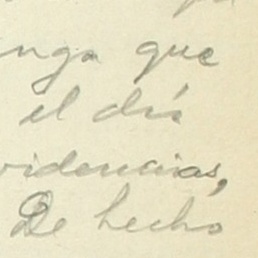 que
el día
videncias,
De hecho